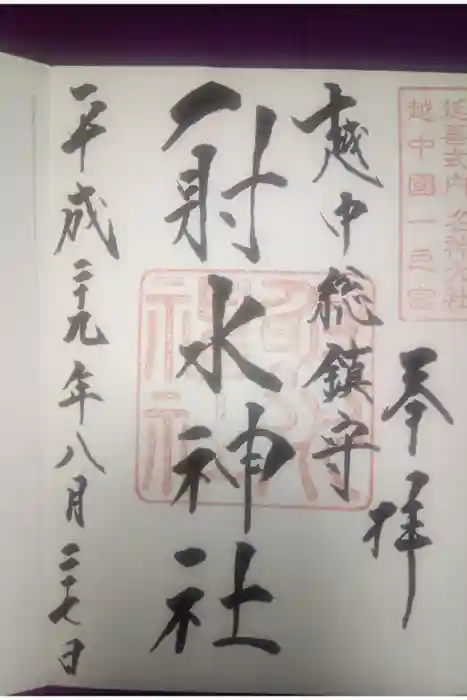 延喜式内 名神大社
越中國一之宮
奉拝
越中総鎮守
射水神社
平成二十九年八月二十七日